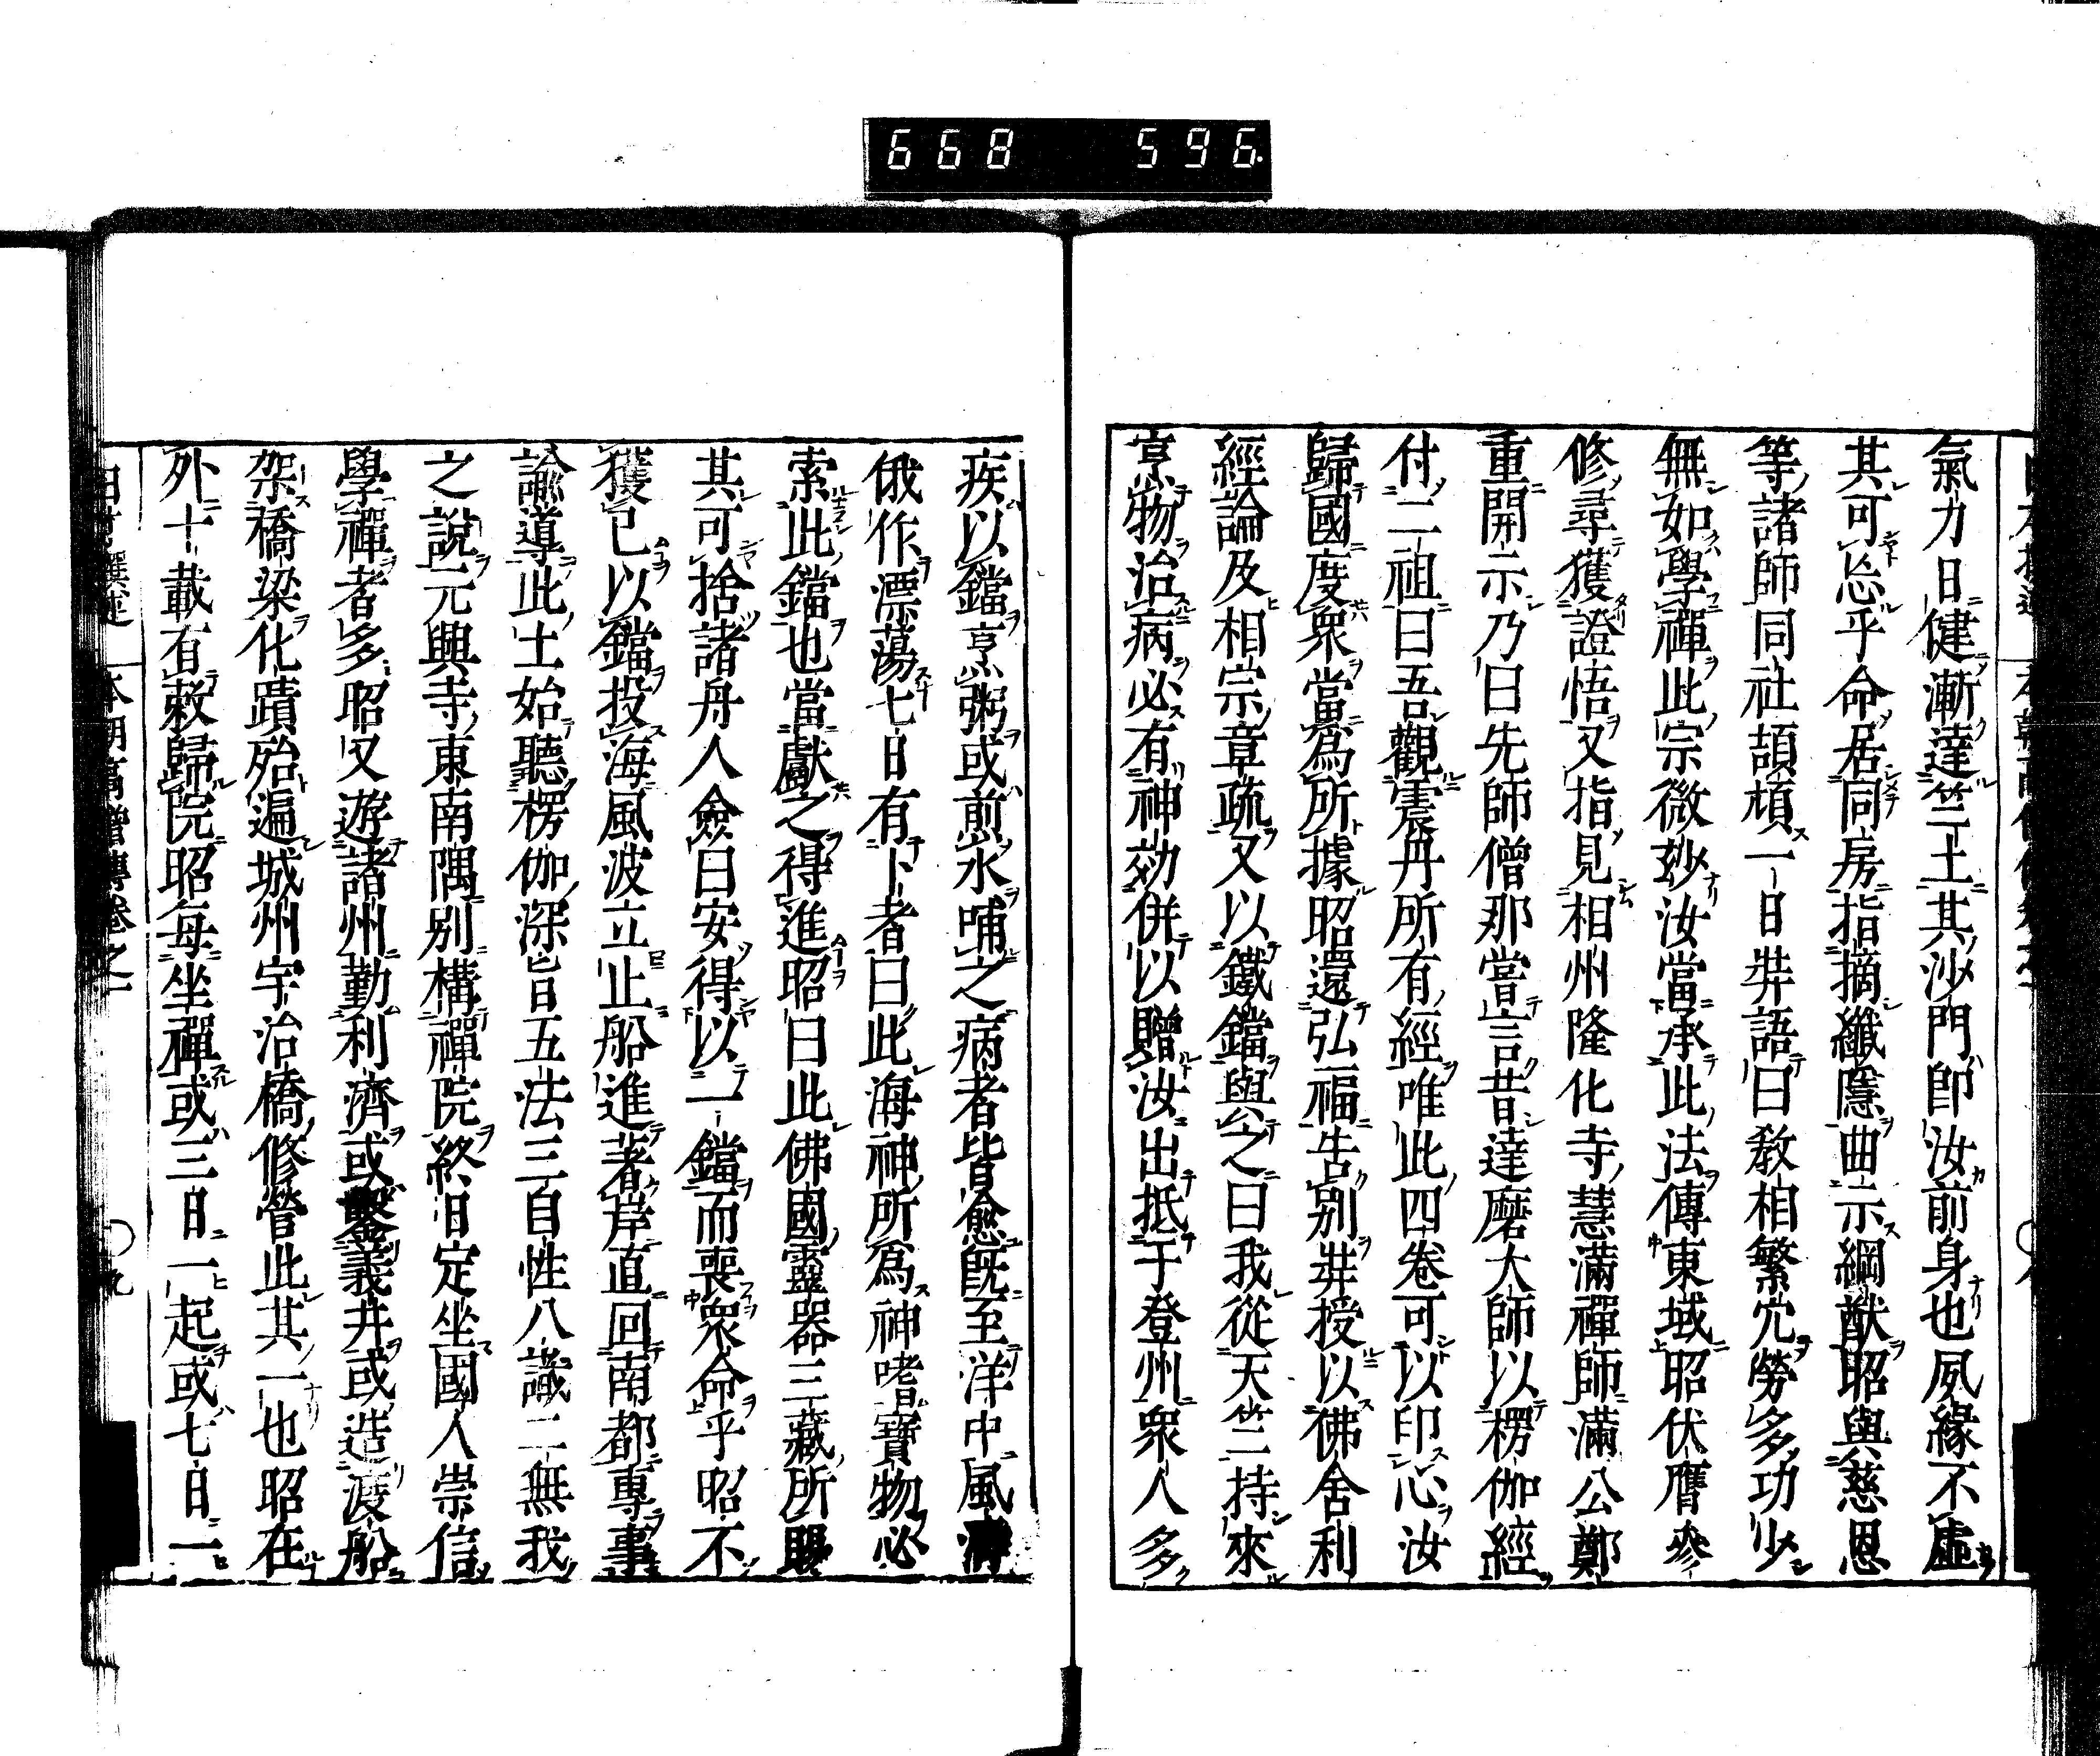 668 596.
氣力日健漸達竺土其沙門卽汝前身也夙緣不虛
其可忘乎命居同房指摘纖隱曲示綱猷昭與慈恩
等諸師同社頡頏一日奘語曰教相繁冗勞多功少
無如學禪此宗微玅汝當承此法傳東域昭伏膺參
修尋獲證悟又指見相州隆化寺慧滿禪師滿公鄭
重開示乃曰先師僧那嘗言昔達磨大師以楞伽經
付二祖曰吾觀震丹所有經唯此四卷可以印心汝
歸國度眾當爲所據昭還弘福告別奘授以佛舍利
經論及相宗章疏又以鐵鐺與之曰我從天竺持來
烹物治病必有神効併以贈汝出抵于登州眾人多
疾以鐺烹粥或煎水哺之病者皆愈旣至洋中風濤
俄作漂蕩七日有卜者曰此海神所爲神嗜寶物必
索此鐺也當獻之得進昭曰此佛國靈器三藏所賜
其可捨諸舟人僉曰安得以一鐺而喪眾命乎昭不
獲已以鐺投海風波立止船進著岸直回南都專事
諭導此土始聽楞伽深旨五法三自性八識二無我
之說元興寺東南隅別構禪院終日定坐國人崇信
學禪者多昭又遊諸州勤利濟或鑿義井或造渡船
架橋梁化蹟殆遍城州宇治橋修營此其一也昭在
外十載有敕歸院昭每坐禪或三日一起或七日一
本朝高僧傳卷之一 九